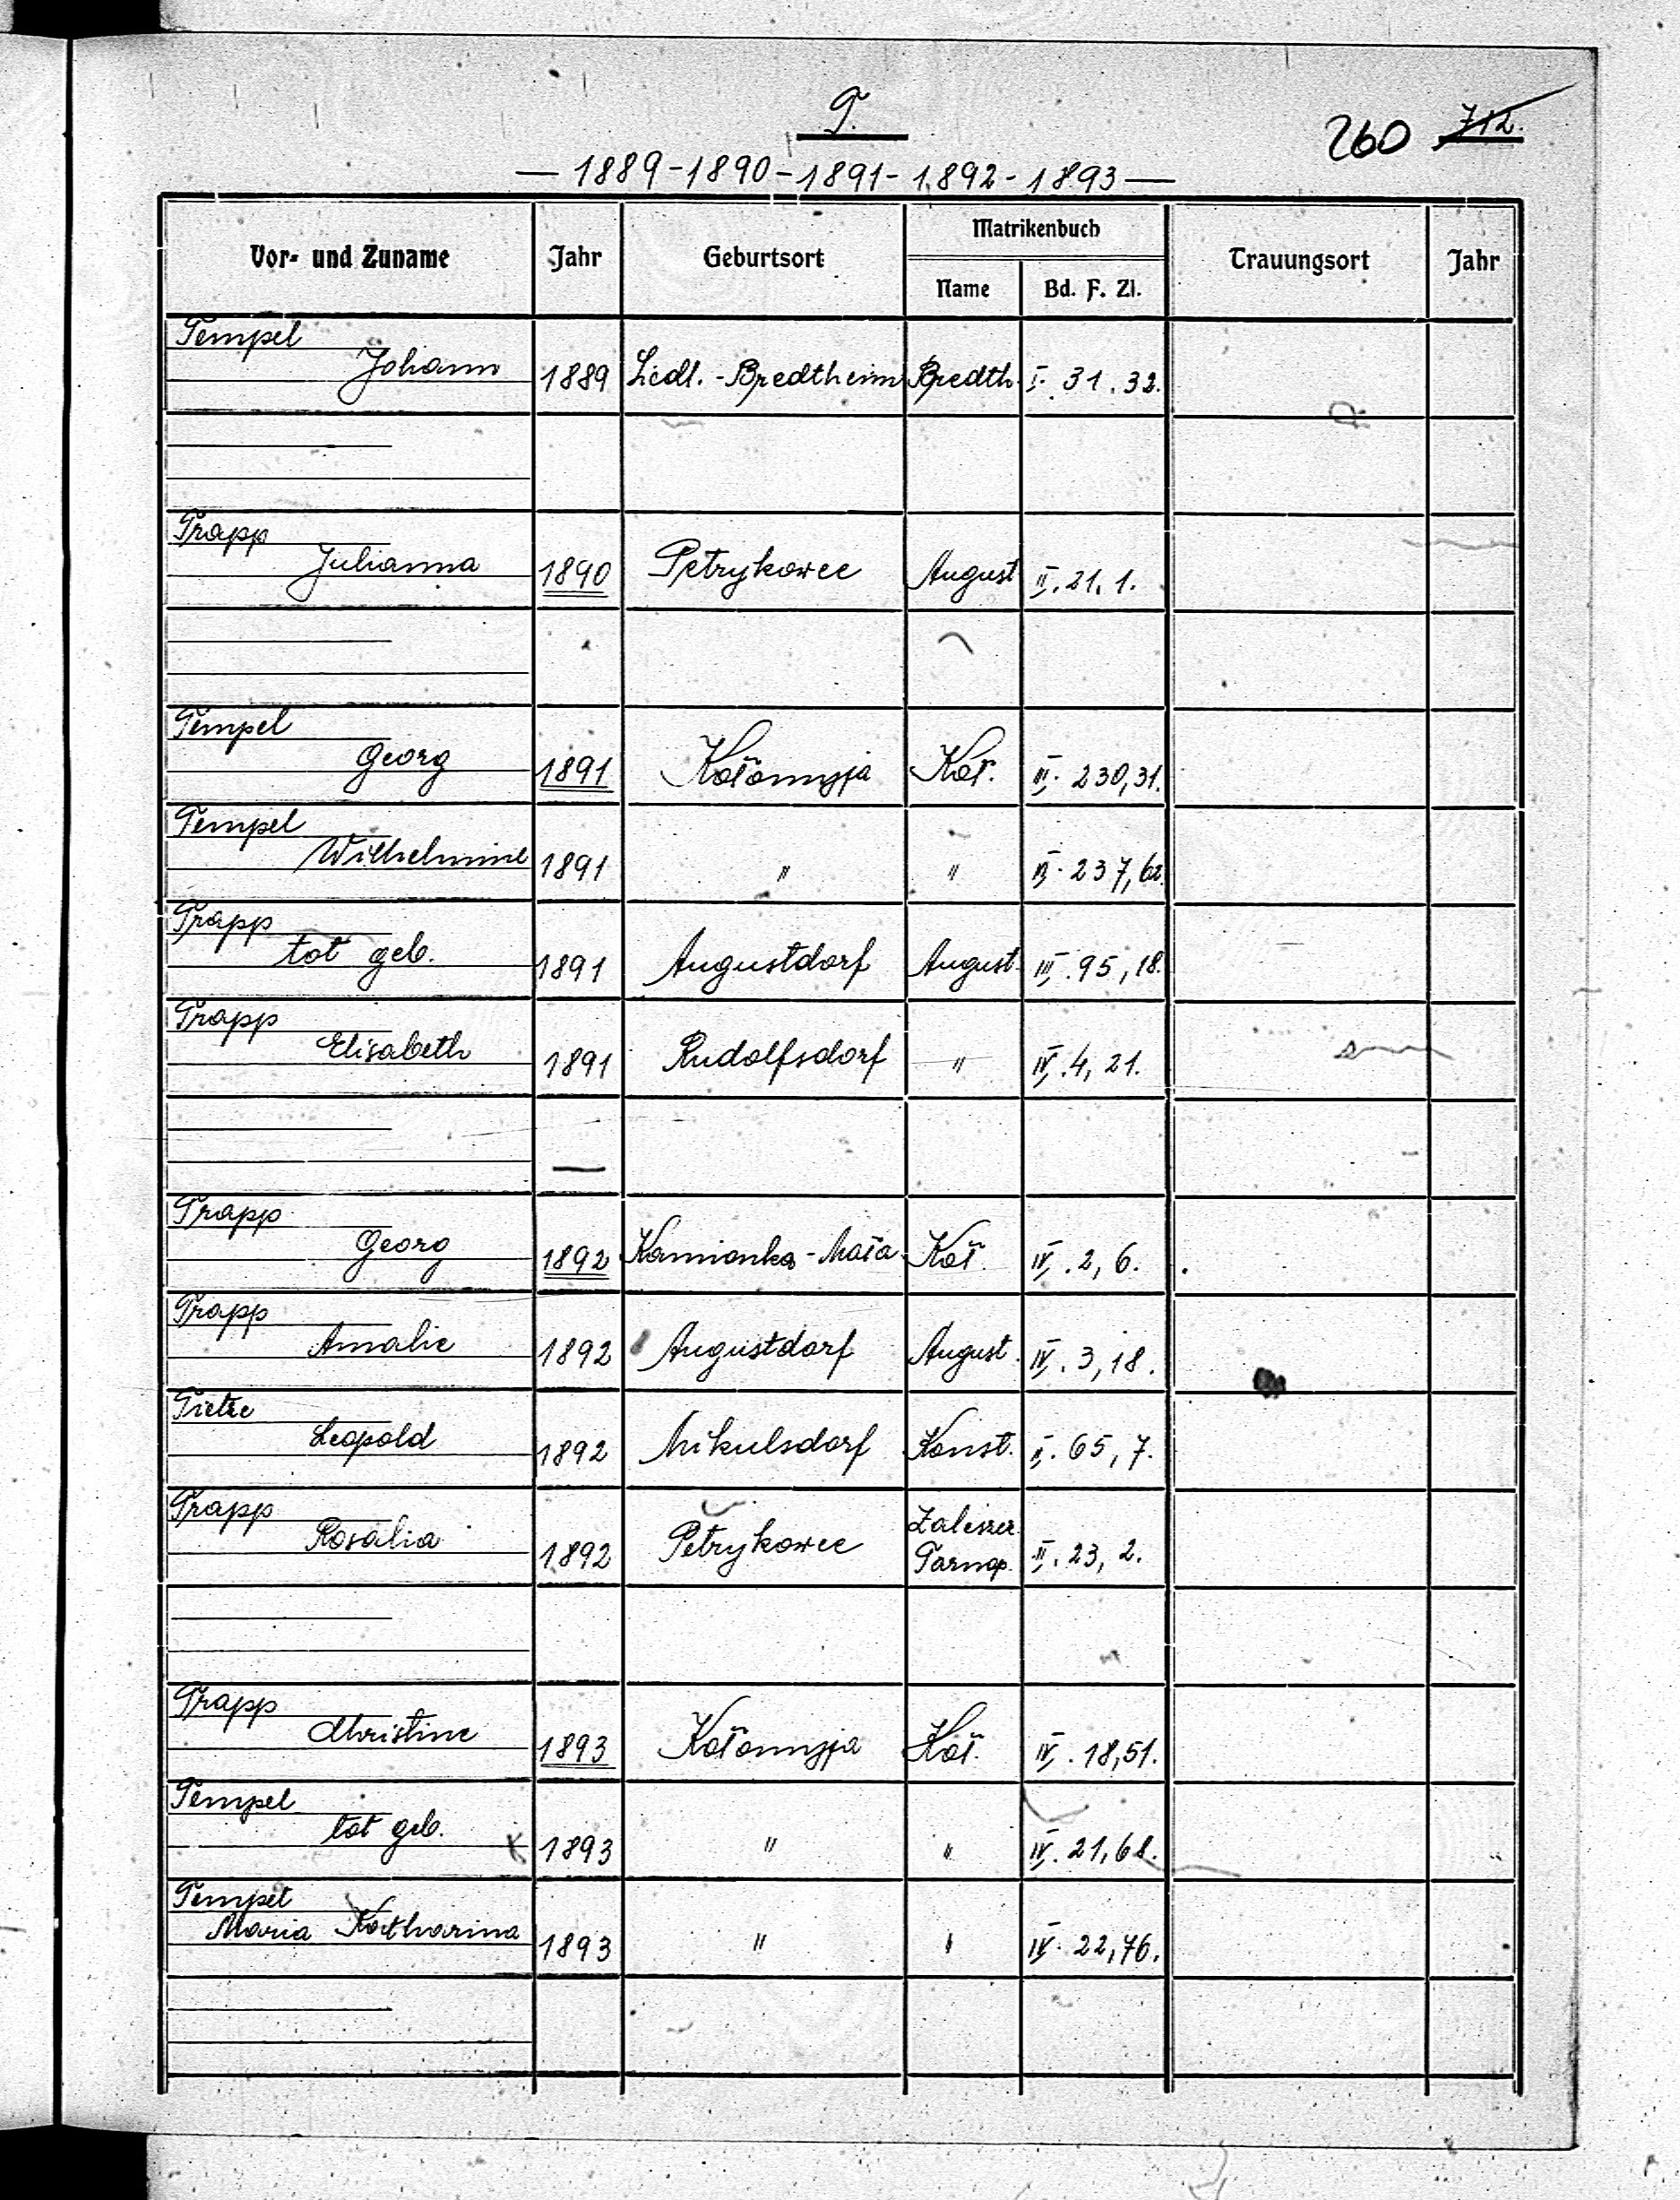 T.
260 712.
— 1889-1890-1891-1892-1893 —
Vor- und Zuname Jahr Geburtsort Matrikenbuch Trauungsort Jahr
Name Bd. F. Zl.
Tempel
Johann 1889 Siedl.-Bredtheim Bredth. I. 31. 32.
Trapp
Julianna 1890 Petrykowce August II. 21. 1.
Tempel
Georg 1891 Kołomyja Koł. III. 230,31.
Tempel
Wilhelmine 1891 " " III. 237,62.
Trapp
tot geb. 1891 Augustdorf August. III. 95,18.
Trapp
Elisabeth 1891 Rudolfsdorf " IV. 4, 21.
Trapp
Georg 1892 Kamionka-Mała Koł. IV. 2, 6.
Trapp
Amalie 1892 Augustdorf August. IV. 3, 18.
Tietze
Leopold 1892 Mikulsdorf Konst. II. 65, 7.
Trapp
Rosalia 1892 Petrykowce Zaleszcz. Tarnop. II. 23, 2.
Trapp
Christine 1893 Kołomyja Koł. IV. 18,51.
Tempel
tot geb. 1893 " " IV. 21,68.
Tempel
Maria Katharina 1893 " " IV. 22,76.